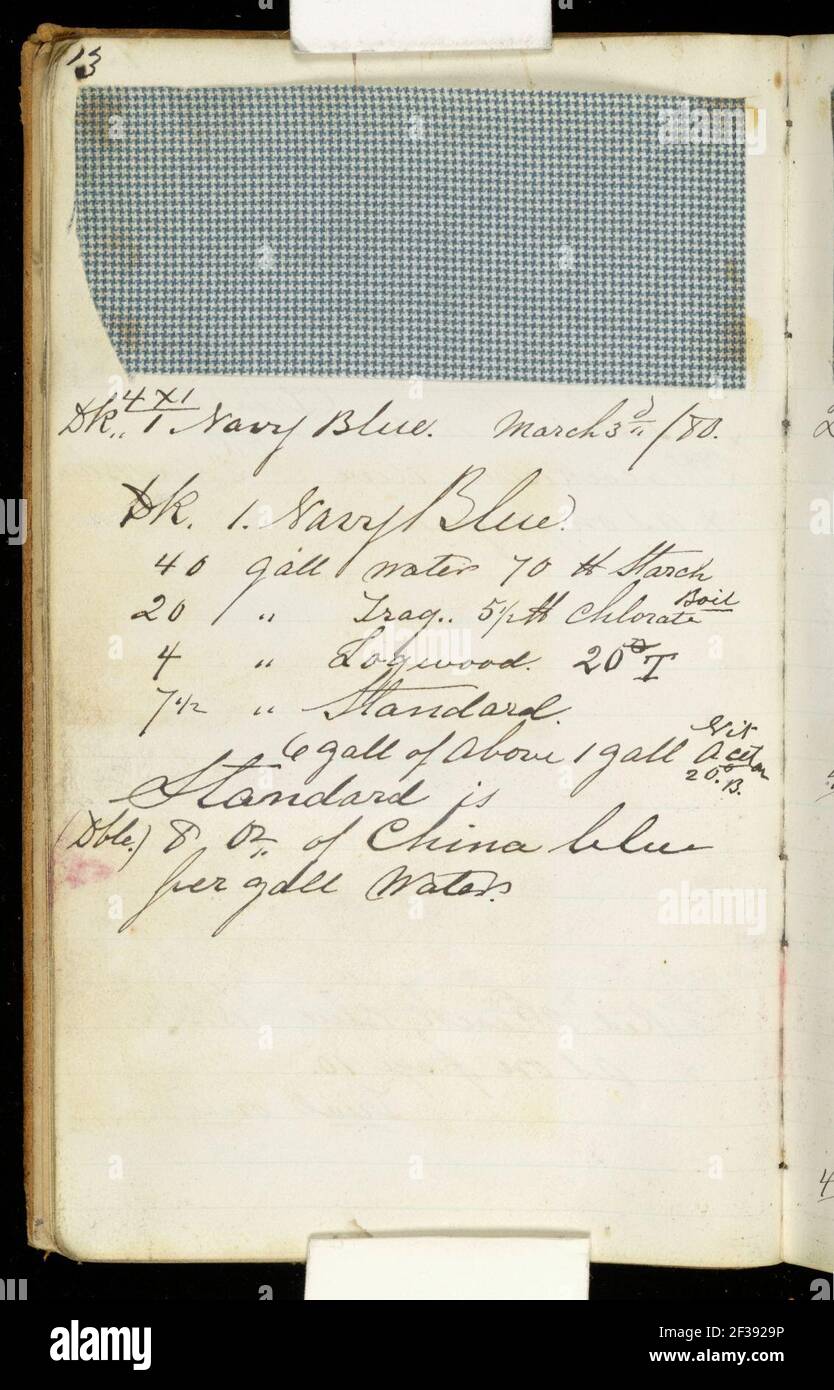 13
4x1
Dk.. 1 Navy Blue. March 3d /80.
Dk. 1. Navy Blue.
40 gall water 70 # Starch
20 " Trag.. 5 1/2 # Chlorate Boil
4 " Logwood. 20° T
7 1/2 " Standard.
6 gall of above 1 gall Nit Acet
20° B.
Standard is
(Dble.) 8 oz of China blue
per gall Water.
alamy
Image ID: 2F3929P
www.alamy.com